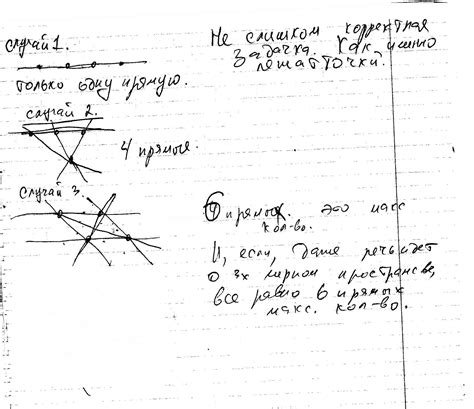 Не слишком корректная
задачка. Как именно
лежат точки.
случай 1.
только одну прямую.
случай 2.
4 прямые.
случай 3.
6 прямых. это макс
кол-во.
И, если, даже речь идет
о 3х мерном пространстве,
все равно 6 прямых
макс. кол-во.